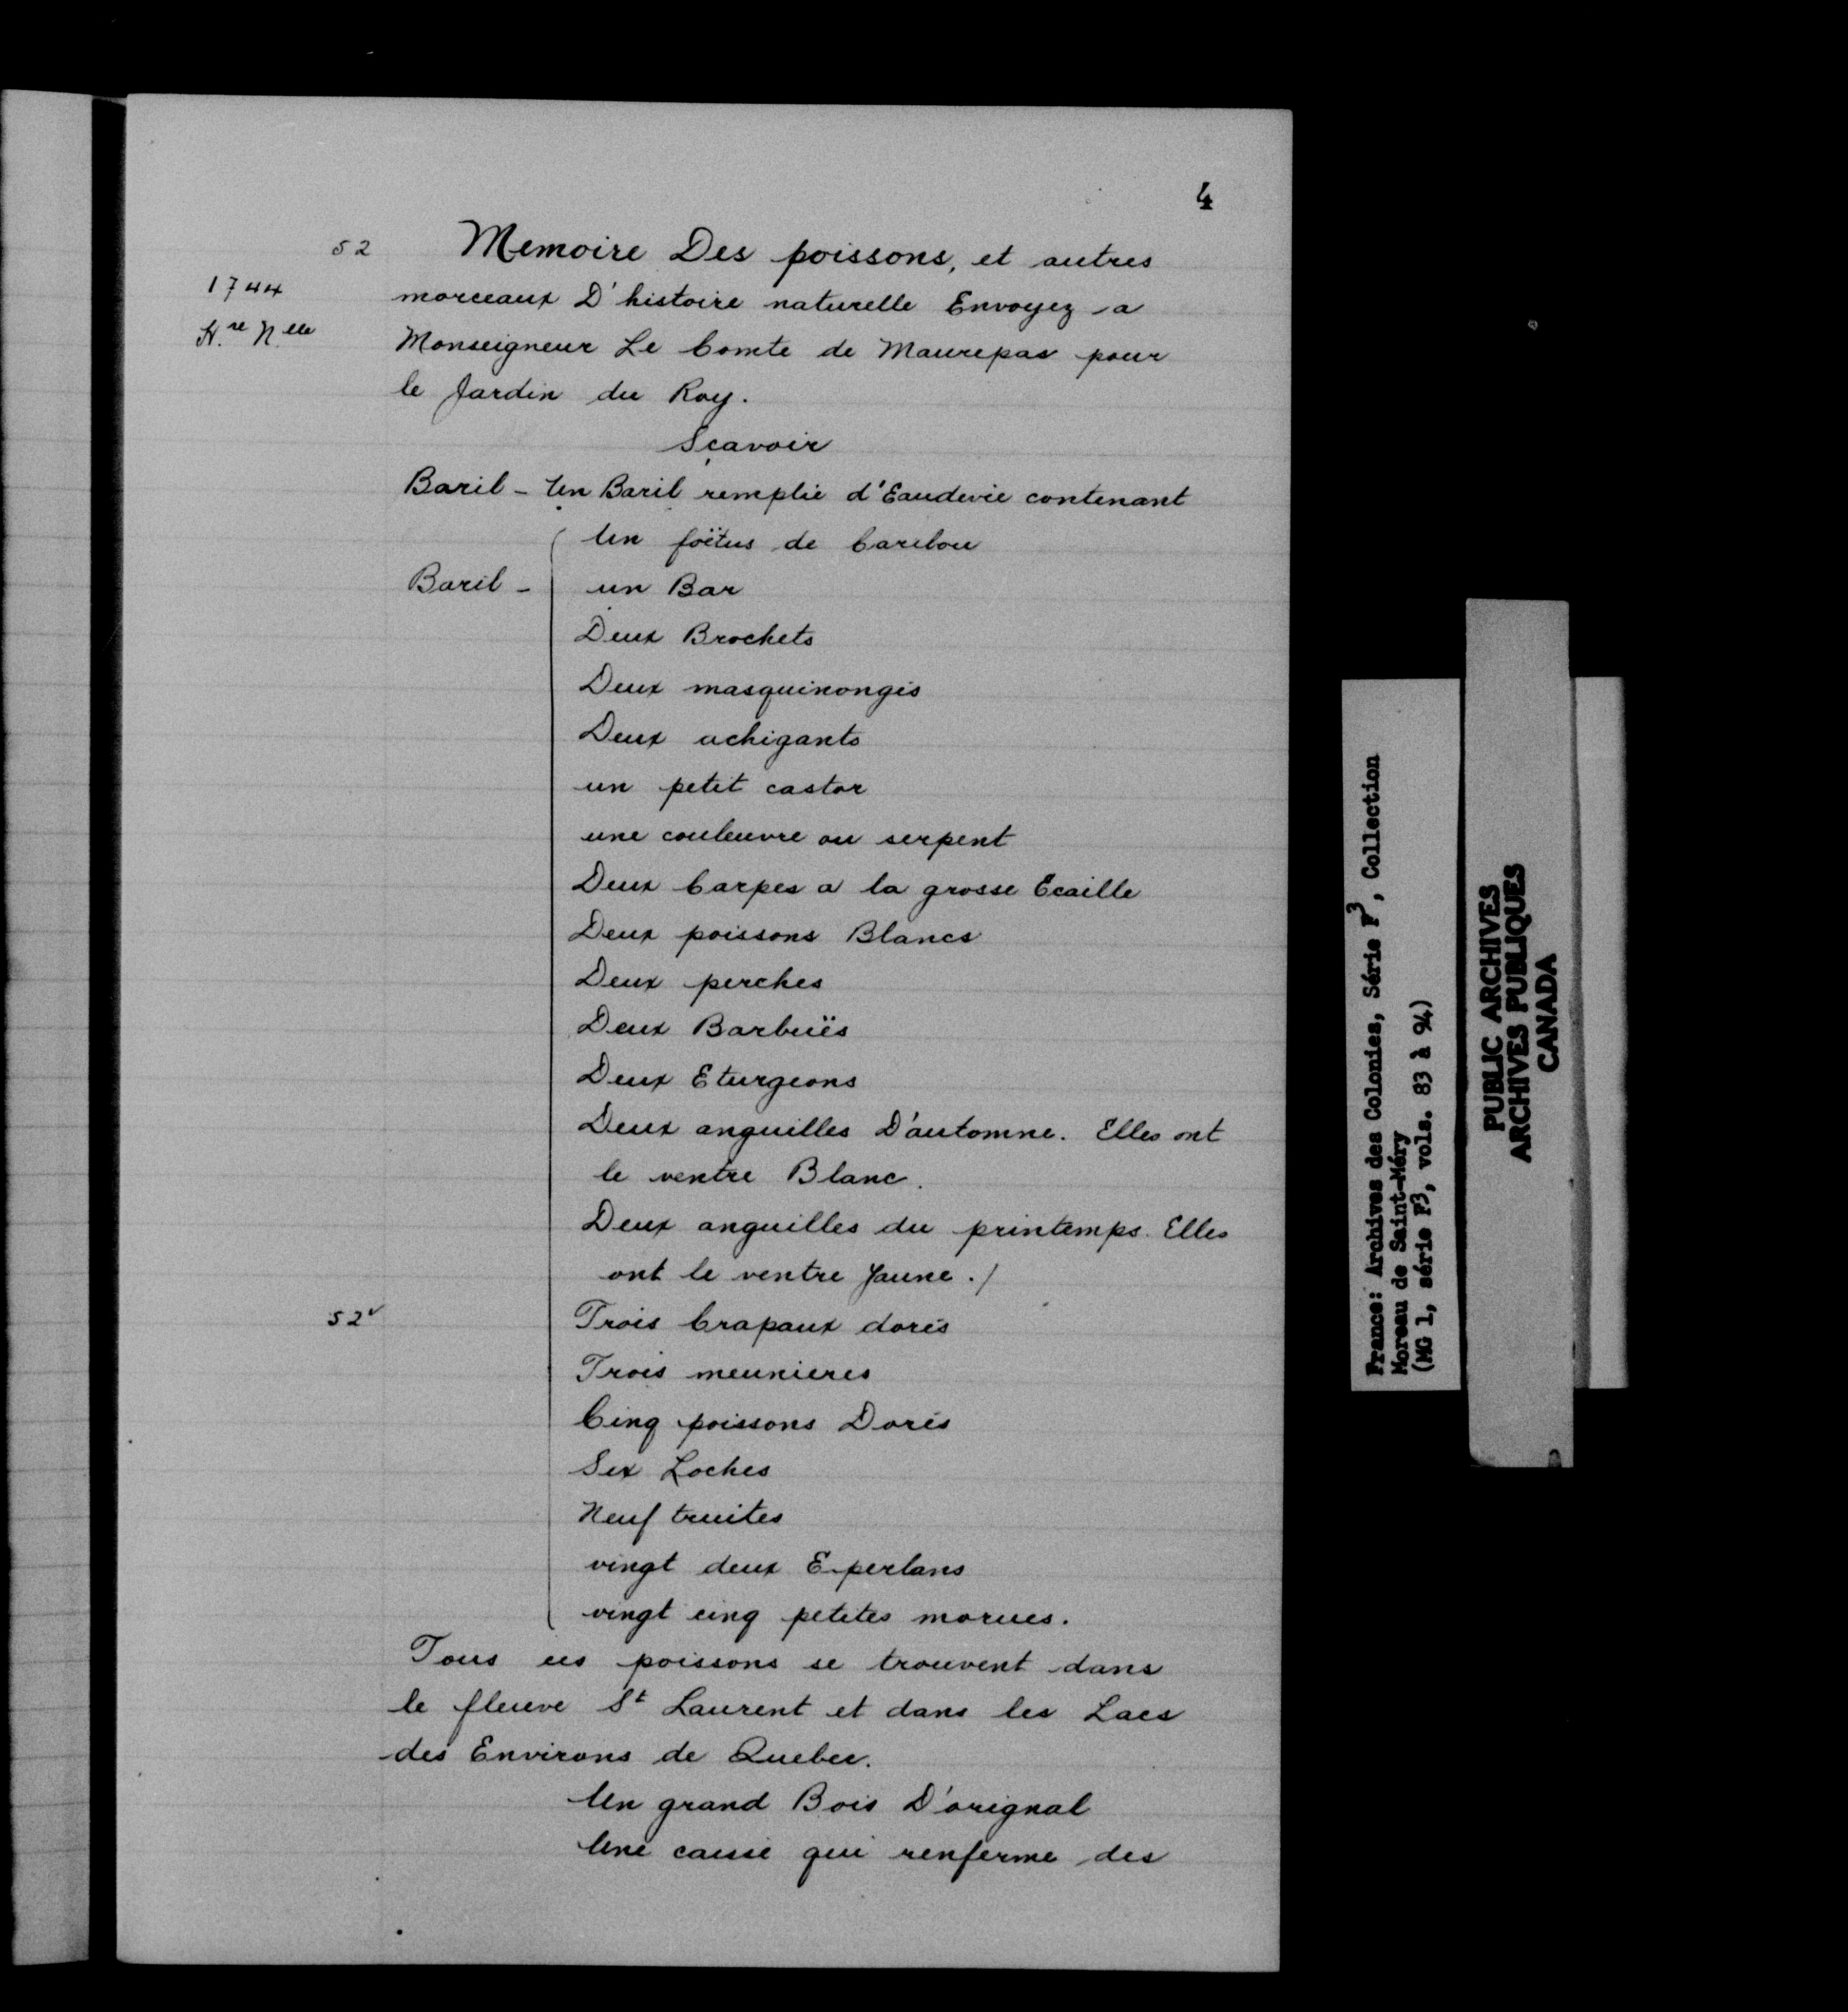 4
52 Memoire Des poissons, et autres
1744 morceaux D'histoire naturelle Envoyez a
H.re N.elle Monseigneur Le Comte de Maurepas pour
le Jardin du Roy.
Sçavoir
Baril - Un Baril remplie d'Eaudevie contenant
Un foëtus de Caribou
Baril - un Bar
Deux Brochets
Deux masquinongis
Deux achigants
un petit castor
une couleuvre ou serpent
Deux Carpes a la grosse Ecaille
Deux poissons Blancs
Deux perches
Deux Barbuës
Deux Eturgeons
Deux anguilles D'automne. Elles ont
le ventre Blanc.
Deux anguilles du printemps. Elles
ont le ventre Jaune./
52v Trois Crapaux dorés
Trois meunieres
Cinq poissons Dorés
Six Loches
Neuf truites
vingt deux Eperlans
vingt cinq petites morues.
Tous ces poissons se trouvent dans
le fleuve St Laurent et dans les Lacs
des Environs de Quebec.
Un grand Bois D'orignal
Une caisse qui renferme des
France: Archives des Colonies, Série F3, Collection
Moreau de Saint-Méry
(MG 1, série F3, vols. 83 à 94)
PUBLIC ARCHIVES
ARCHIVES PUBLIQUES
CANADA